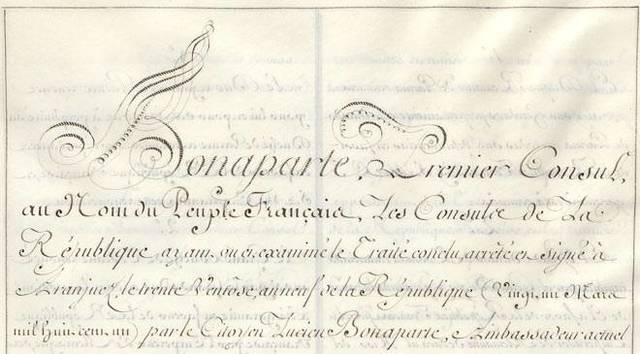 Bonaparte, Premier Consul,
au Nom du Peuple Français, Les Consuls de La
République ayant vu et examiné le Traité conclu, arrêté et Signé à
Aranjuez le trente Ventôse, an neuf de la République (Vingt un Mars
mil huit cent un) par le Citoyen Lucien Bonaparte, Ambassadeur actuel